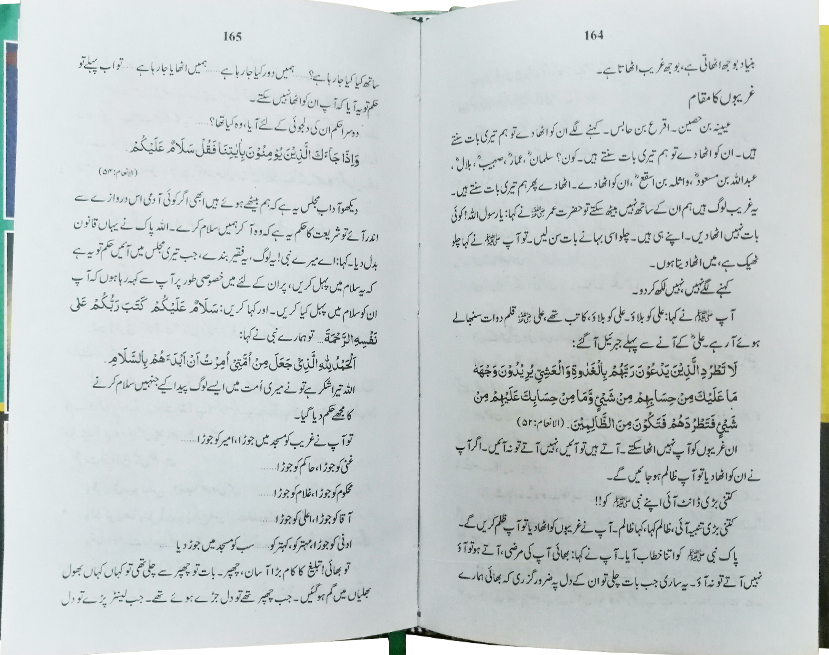 164
بنیاد بوجھ اٹھاتی ہے، بوجھ غریب اٹھاتا ہے۔
غریبوں کا مقام
عیینہ بن حصین۔ اقرع بن حابس۔ کہنے لگے ان کو اٹھا دے تو ہم تیری بات سنتے
ہیں۔ ان کو اٹھا دے تو ہم تیری بات سنتے ہیں۔ کون؟ سلمانؓ، عمارؓ، صہیبؓ، بلالؓ،
عبداللہ بن مسعودؓ، واثلہ بن اسقعؓ، ان کو اٹھا دے۔ اٹھا دے پھر ہم تیری بات سنتے ہیں۔
یہ غریب لوگ ہیں ہم ان کے ساتھ نہیں بیٹھ سکتے تو حضرت عمرؓ نے کہا: یا رسول اللہ! کوئی
بات نہیں اٹھا دیں۔ اپنے ہی ہیں۔ چلو اسی بہانے بات سن لیں۔ تو آپ ﷺ نے کہا چلو
ٹھیک ہے، میں اٹھا دیتا ہوں۔
کہنے لگے نہیں، نہیں لکھ کر دو۔
آپ ﷺ نے کہا: علی کو بلاؤ۔ علی کو بلاؤ، کاتب تھے، علیؓ قلم دوات سنبھالے
ہوئے آ رہے، علیؓ کے آنے سے پہلے جبرئیل آ گئے:
لَا تَطْرُدِ الَّذِيْنَ يَدْعُوْنَ رَبَّهُمْ بِالْغَدٰوةِ وَالْعَشِيِّ يُرِيْدُوْنَ وَجْهَهٗ
مَا عَلَيْكَ مِنْ حِسَابِهِمْ مِنْ شَيْئٍ وَّمَا مِنْ حِسَابِكَ عَلَيْهِمْ مِنْ
شَيْئٍ فَتَطْرُدَهُمْ فَتَكُوْنَ مِنَ الظَّالِمِيْنَ۔ (الانعام: ۵۲)
ان غریبوں کو آپ نہیں اٹھا سکتے۔ آتے ہیں تو آئیں، نہیں آتے تو نہ آئیں۔ اگر آپ
نے ان کو اٹھا دیا تو آپ ظالم ہو جائیں گے۔
کتنی بڑی ڈانٹ آئی اپنے نبی ﷺ کو!!
کتنی بڑی تنبیہ آئی، ظالم کہا، کہا ظالم۔ آپ نے غریبوں کو اٹھا دیا تو آپ ظلم کریں گے۔
پاک نبی ﷺ کو اتنا خطاب آیا۔ آپ نے کہا: بھائی آپ کی مرضی، آتے ہو تو آؤ
نہیں آتے تو نہ آؤ۔ یہ ساری جب بات چلی تو ان کے دل پہ ضرور گزری کہ بھائی ہمارے
165
ساتھ کیا کیا جا رہا ہے؟ ..... ہمیں دور کیا جا رہا ہے ..... ہمیں اٹھایا جا رہا ہے ..... تو اب پہلے تو
حکم تو یہ آیا کہ آپ ان کو اٹھا نہیں سکتے۔
دوسرا حکم ان کی دلجوئی کے لئے آیا، وہ کیا تھا؟.....
وَاِذَا جَاءَكَ الَّذِيْنَ يُؤْمِنُوْنَ بِاٰيٰتِنَا فَقُلْ سَلَامٌ عَلَيْكُمْ۔
(الانعام: ۵۴)
دیکھو آداب مجلس یہ ہے کہ ہم بیٹھے ہوئے ہیں ابھی اگر کوئی آدمی اس دروازے سے
اندر آئے تو شریعت کا حکم یہ ہے کہ وہ آ کر ہمیں سلام کرے۔ اللہ پاک نے یہاں قانون
بدل دیا۔ کہا: اے میرے نبی! یہ لوگ، یہ فقیر بندے، جب تیری مجلس میں آئیں حکم تو یہ ہے
کہ یہ سلام میں پہل کریں، پر ان کے لئے میں خصوصی طور پر آپ سے کہہ رہا ہوں کہ آپ
ان کو سلام میں پہل کیا کریں۔ اور کہا کریں: سَلَامٌ عَلَيْكُمْ كَتَبَ رَبُّكُمْ عَلٰى
نَفْسِهِ الرَّحْمَةَ۔ تو ہمارے نبی نے کہا:
اَلْحَمْدُ لِلّٰهِ الَّذِيْ جَعَلَ مِنْ اُمَّتِيْ اُمِرْتُ اَنْ اَبْدَءَهُمْ بِالسَّلَامِ۔
اللہ تیرا شکر ہے تو نے میری امت میں ایسے لوگ پیدا کیے جنہیں سلام کرنے
کا مجھے حکم دیا گیا۔
تو آپ نے غریب کو مسجد میں جوڑا، امیر کو جوڑا.....
غنی کو جوڑا، حاکم کو جوڑا.....
محکوم کو جوڑا، غلام کو جوڑا.....
آقا کو جوڑا، اعلیٰ کو جوڑا.....
ادنیٰ کو جوڑا، مہتر کو، کہتر کو..... سب کو مسجد میں جوڑ دیا
تو بھائی! تبلیغ کا کام بڑا آسان، چھپر۔ بات تو چھپر سے چلی تھی تو کہاں کہاں بھول
بھلیاں میں گم ہو گئیں۔ جب چھپر تھے تو دل جڑے ہوئے تھے۔ جب لینٹر پڑے تو دل